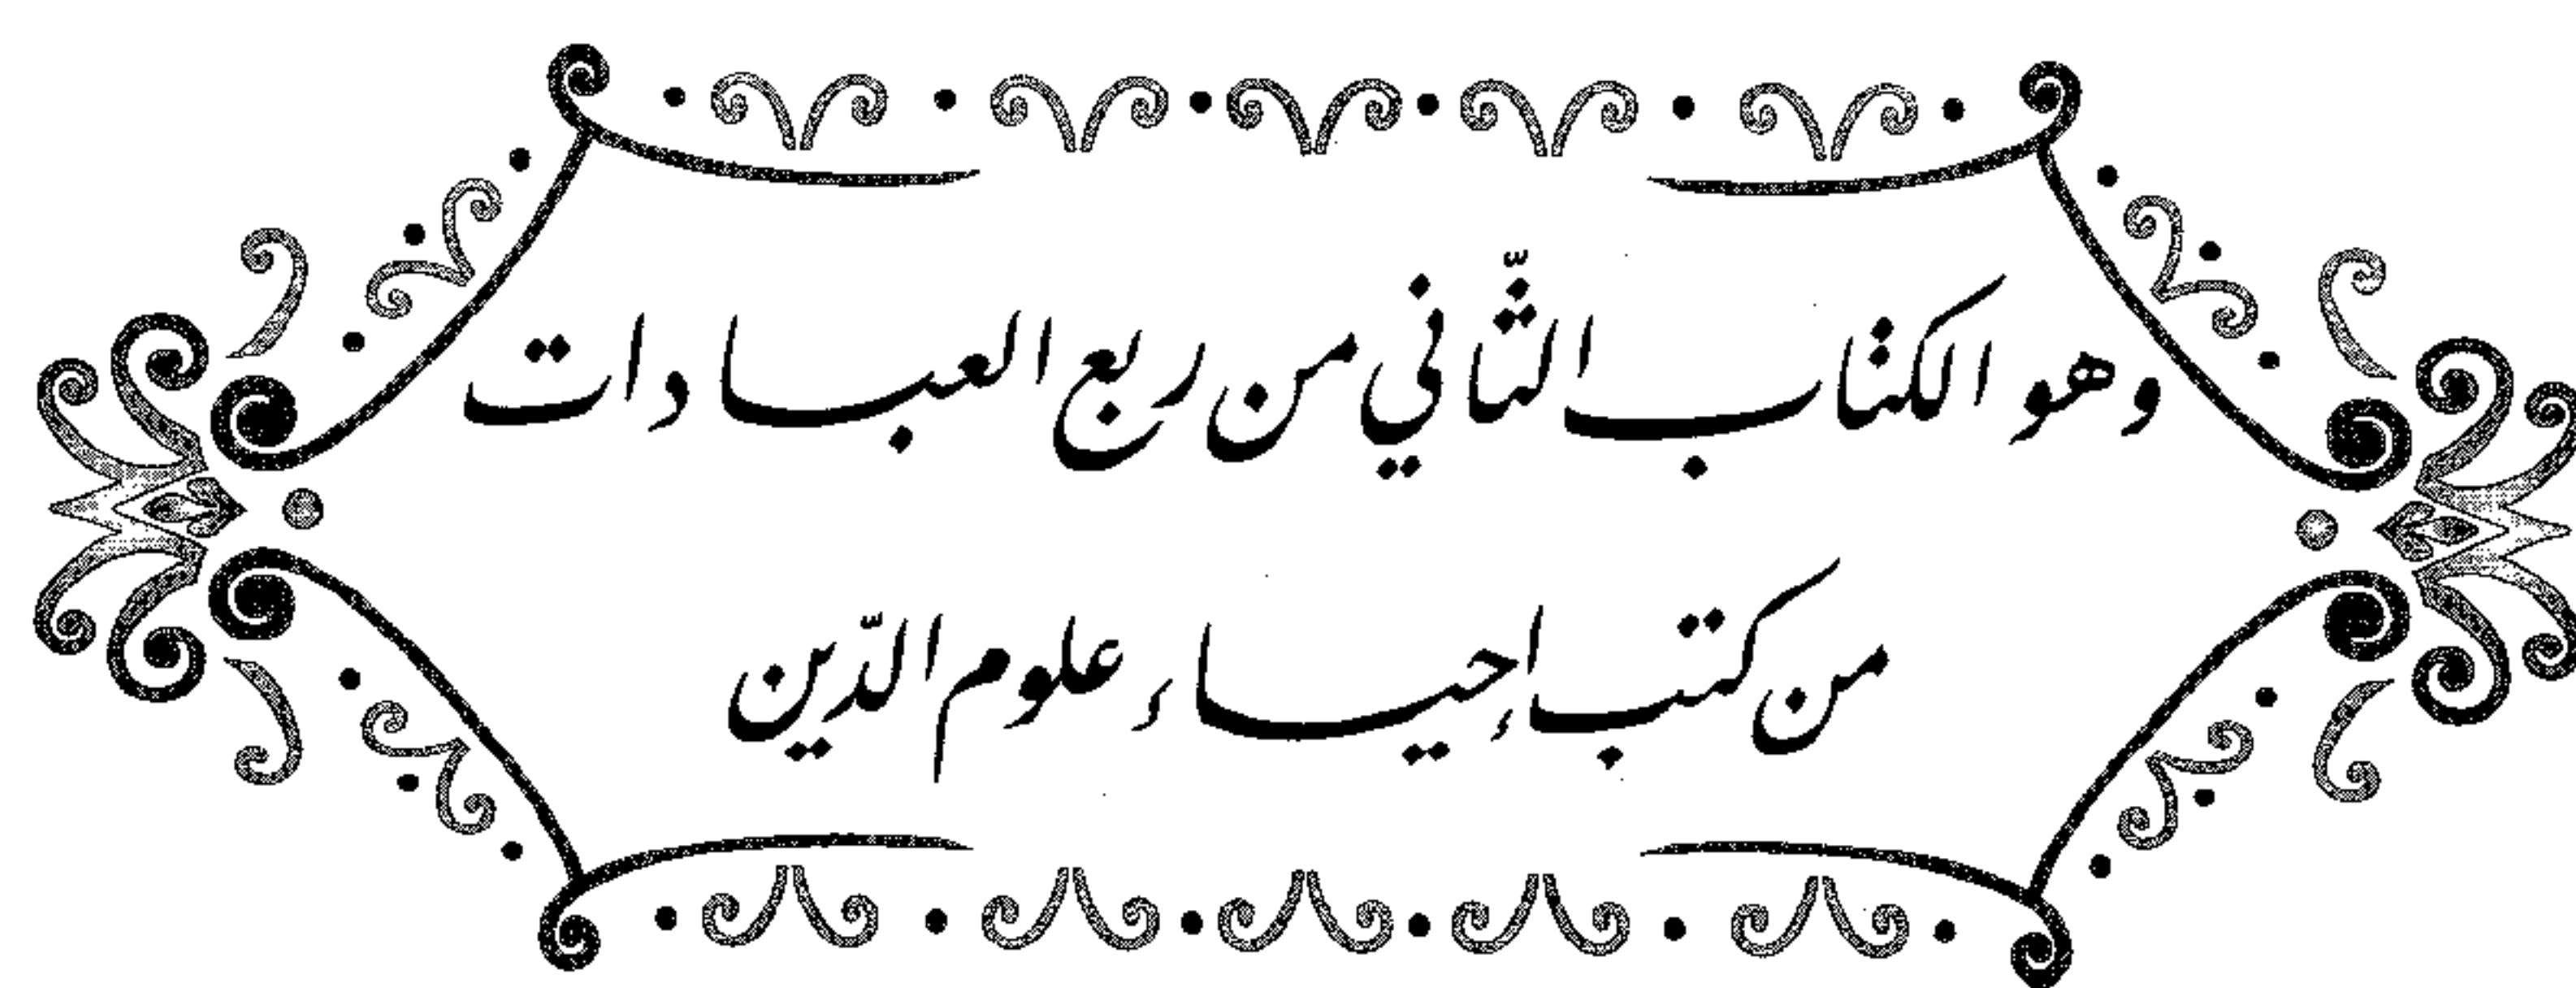 وهو الكتاب الثَّاني من ربع العبادات
من كتب إحياء علوم الدّين